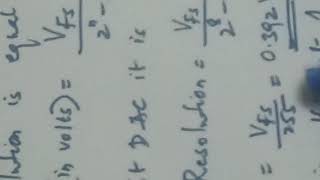 lution is equal
in volts) = V_FS / 2^n -
t DAC it is
Resolution = V_FS / 2^8 -
= V_FS / 255 = 0.392